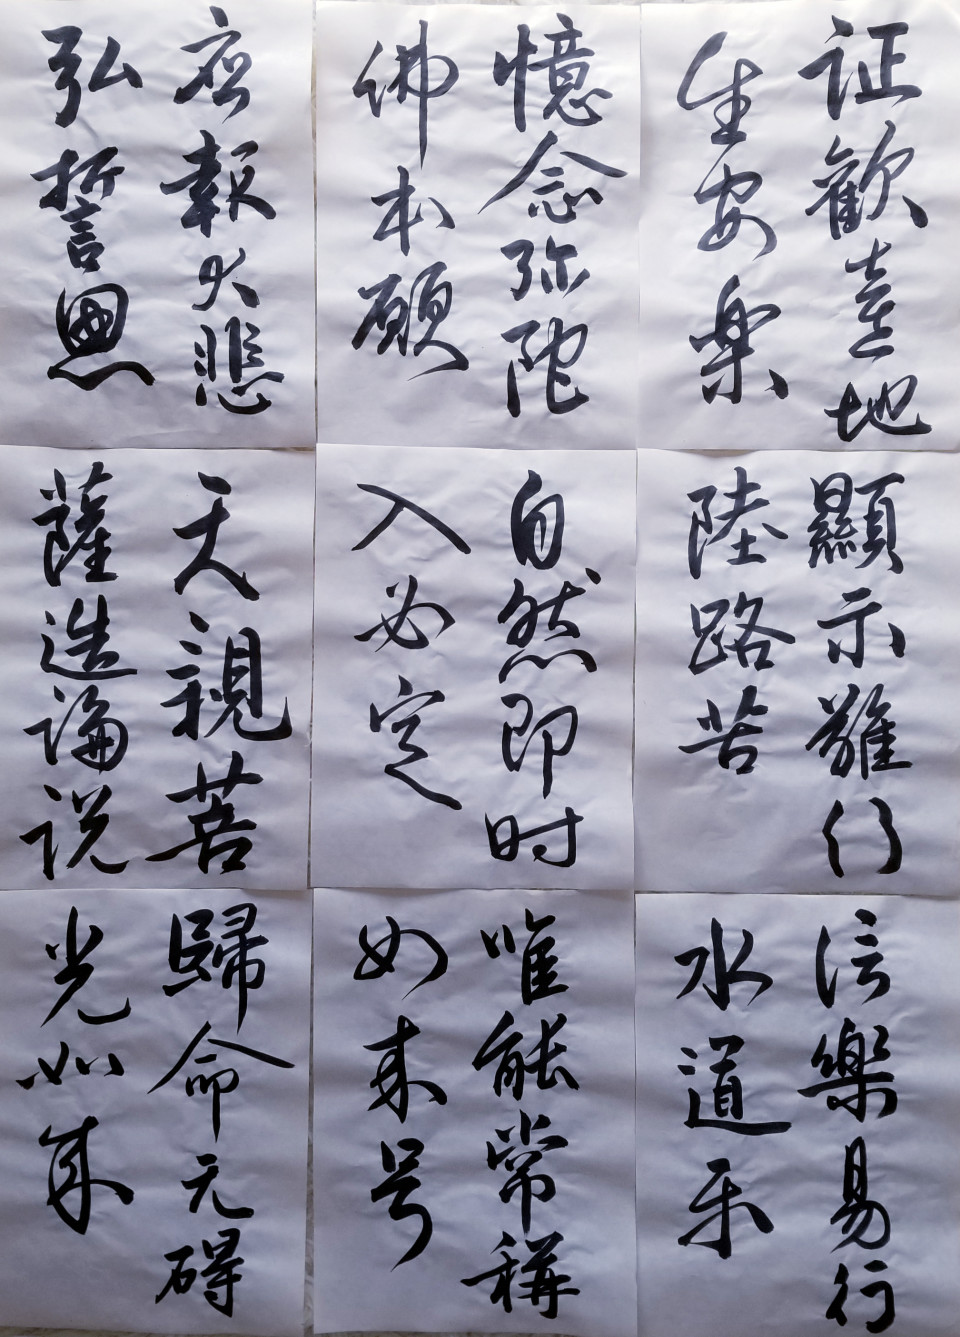 证歡喜地
生安楽
顯示難行
陸路苦
信樂易行
水道乐
憶念弥陀
佛本願
自然即时
入必定
唯能常稱
如来号
应報大悲
弘誓恩
天親菩
薩造論说
歸命无碍
光如来